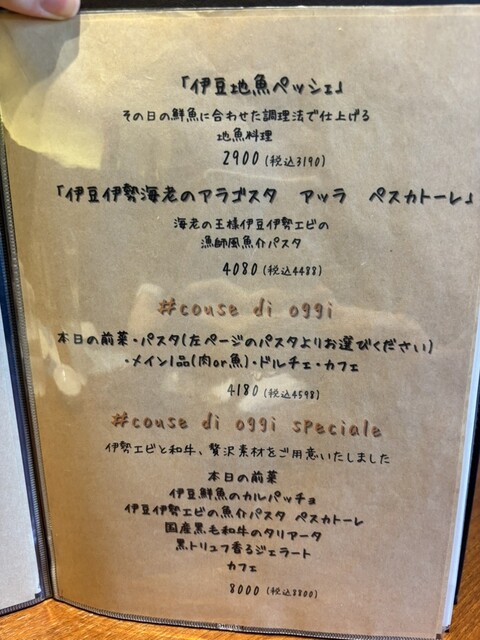 「伊豆地魚ペッシェ」
その日の鮮魚に合わせた調理法で仕上げる
地魚料理
2900 (税込3190)
「伊豆伊勢海老のアラゴスタ　アッラ　ペスカトーレ」
海老の王様伊豆伊勢エビの
漁師風魚介パスタ
4080 (税込4488)
#couse di oggi
本日の前菜・パスタ(左ページのパスタよりお選びください)
・メイン1品(肉or魚)・ドルチェ・カフェ
4180 (税込4598)
#couse di oggi speciale
伊勢エビと和牛、贅沢素材をご用意いたしました
本日の前菜
伊豆鮮魚のカルパッチョ
伊豆伊勢エビの魚介パスタ ペスカトーレ
国産黒毛和牛のタリアータ
黒トリュフ香るジェラート
カフェ
8000 (税込8800)